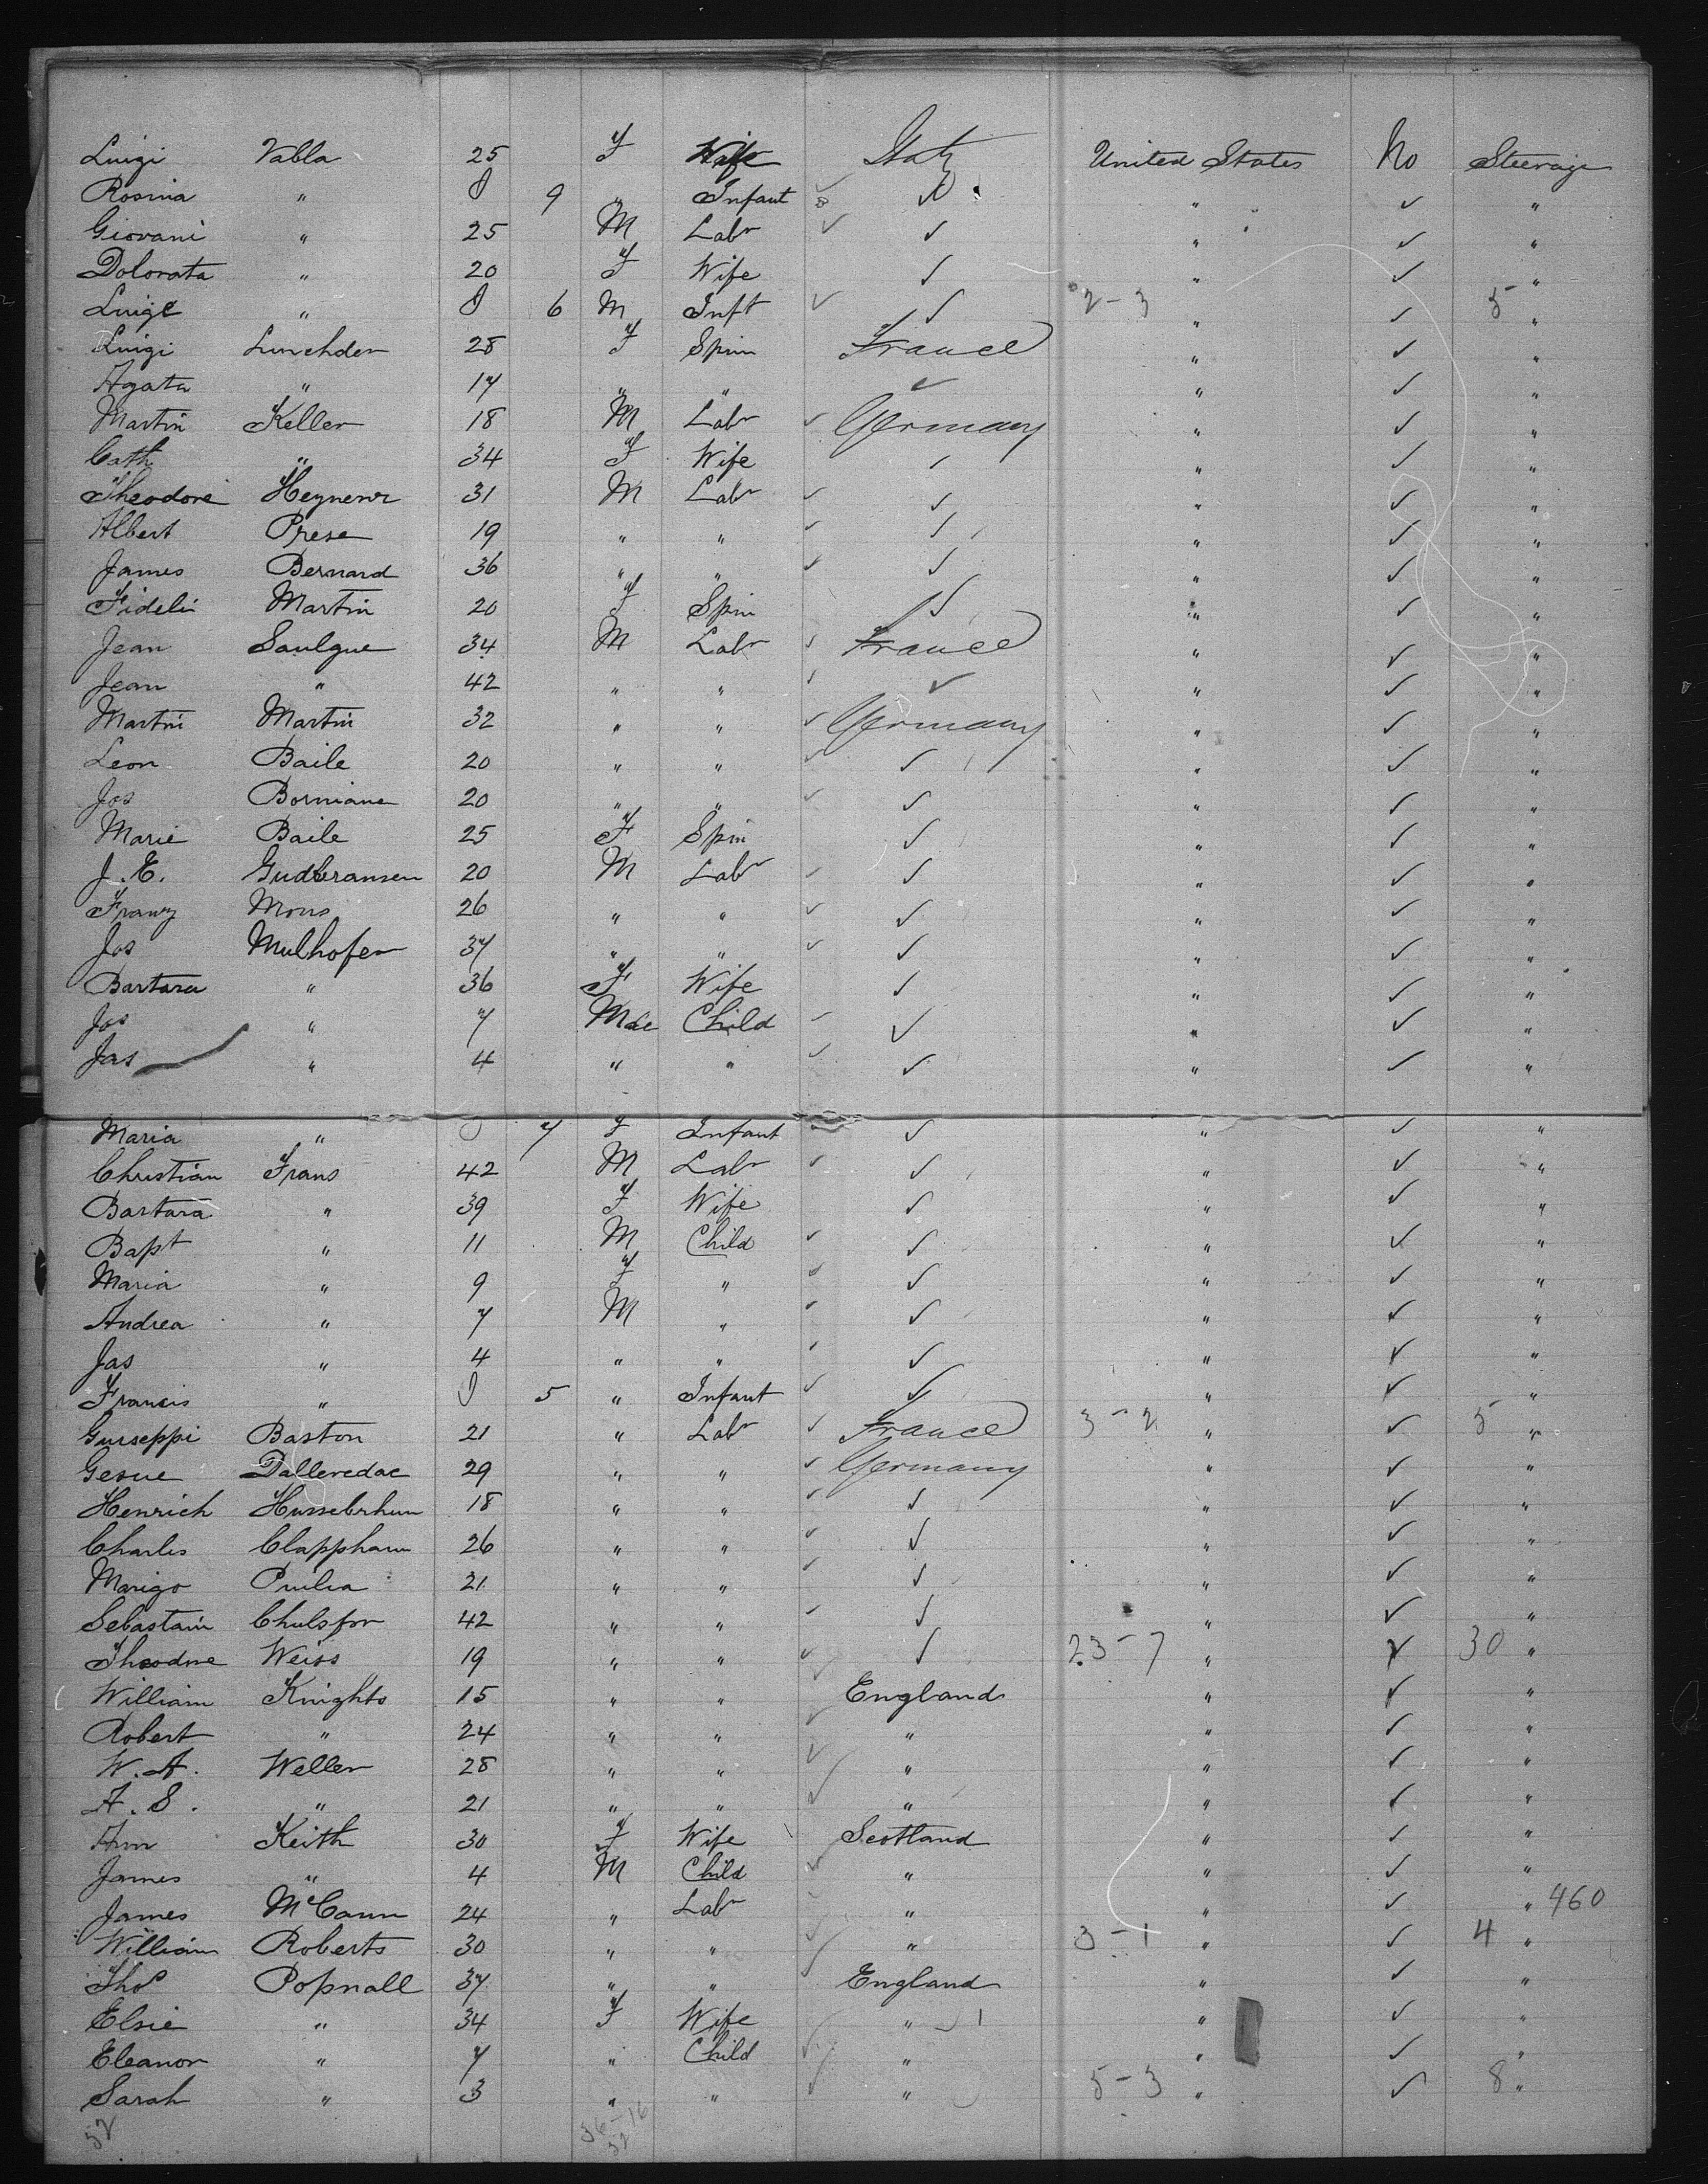 Luigi Vabla 25 F Wife Italy United States No Steerage
Rosina " 0 9 " Infant ✓ " ✓ "
Giovani " 25 M Labr ✓ " ✓ "
Dolorata " 20 F Wife ✓ " ✓ "
Luige " 0 6 M Inft ✓ 2-3 " ✓ 5 "
Luigi Lunchden 28 F Spin France " ✓ "
Agata " 17 " " ✓ " ✓ "
Martin Keller 18 M Labr Germany " ✓ "
Cath " 34 F Wife ✓ " ✓ "
Theodore Heynenr 31 M Labr ✓ " ✓ "
Albert Prese 19 " " ✓ " ✓ "
James Bernard 36 " " ✓ " ✓ "
Fideli Martin 20 F Spin ✓ " ✓ "
Jean Saulgue 34 M Labr France " ✓ "
Jean " 42 " " ✓ " ✓ "
Martin Martin 32 " " Germany " ✓ "
Leon Baile 20 " " ✓ " ✓ "
Jos Borniane 20 " " ✓ " ✓ "
Marie Baile 25 F Spin ✓ " ✓ "
J. E. Gudbransen 20 M Labr ✓ " ✓ "
Franz Mons 26 " " ✓ " ✓ "
Jos Mulhofer 37 " " ✓ " ✓ "
Bartara " 36 F Wife ✓ " ✓ "
Jos " 7 Male Child ✓ " ✓ "
Jas " 4 " " ✓ " ✓ "
Maria " 0 7 F Infant ✓ " ✓ "
Christian Frans 42 M Labr ✓ " ✓ "
Bartara " 39 F Wife ✓ " ✓ "
Bapt " 11 M Child ✓ " ✓ "
Maria " 9 F " ✓ " ✓ "
Andrea " 7 M " ✓ " ✓ "
Jas " 4 " " ✓ " ✓ "
Francis " 0 5 " Infant ✓ " ✓ "
Guiseppi Baston 21 " Labr France 3-2 " ✓ 5 "
Gesue Dalleredac 29 " " Germany " ✓ "
Henrich 18 " " ✓ " ✓ "
Charles Clappham 26 " " ✓ " ✓ "
Marigo 21 " " ✓ " ✓ "
Sebastain 42 " " ✓ " ✓ "
Theodore Weiss 19 " " ✓ 23-7 " ✓ 30 "
William Knights 15 " " England " ✓ "
Robert " 24 " " " " ✓ "
W. A. Weller 28 " " " " ✓ "
A. S. " 21 " " " " ✓ "
Ann Keith 30 F Wife Scotland " ✓ "
James " 4 M Child " " ✓ "
James McCann 24 " Labr " " ✓ " 460
William Roberts 30 " " " 3-1 " ✓ 4 "
Thos Popnall 37 " " England " ✓ "
Elsie " 34 F Wife " 1 " ✓ "
Eleanor " 7 " Child " " ✓ "
Sarah " 3 " " " 5-3 " ✓ 8 "
52 36-16
52